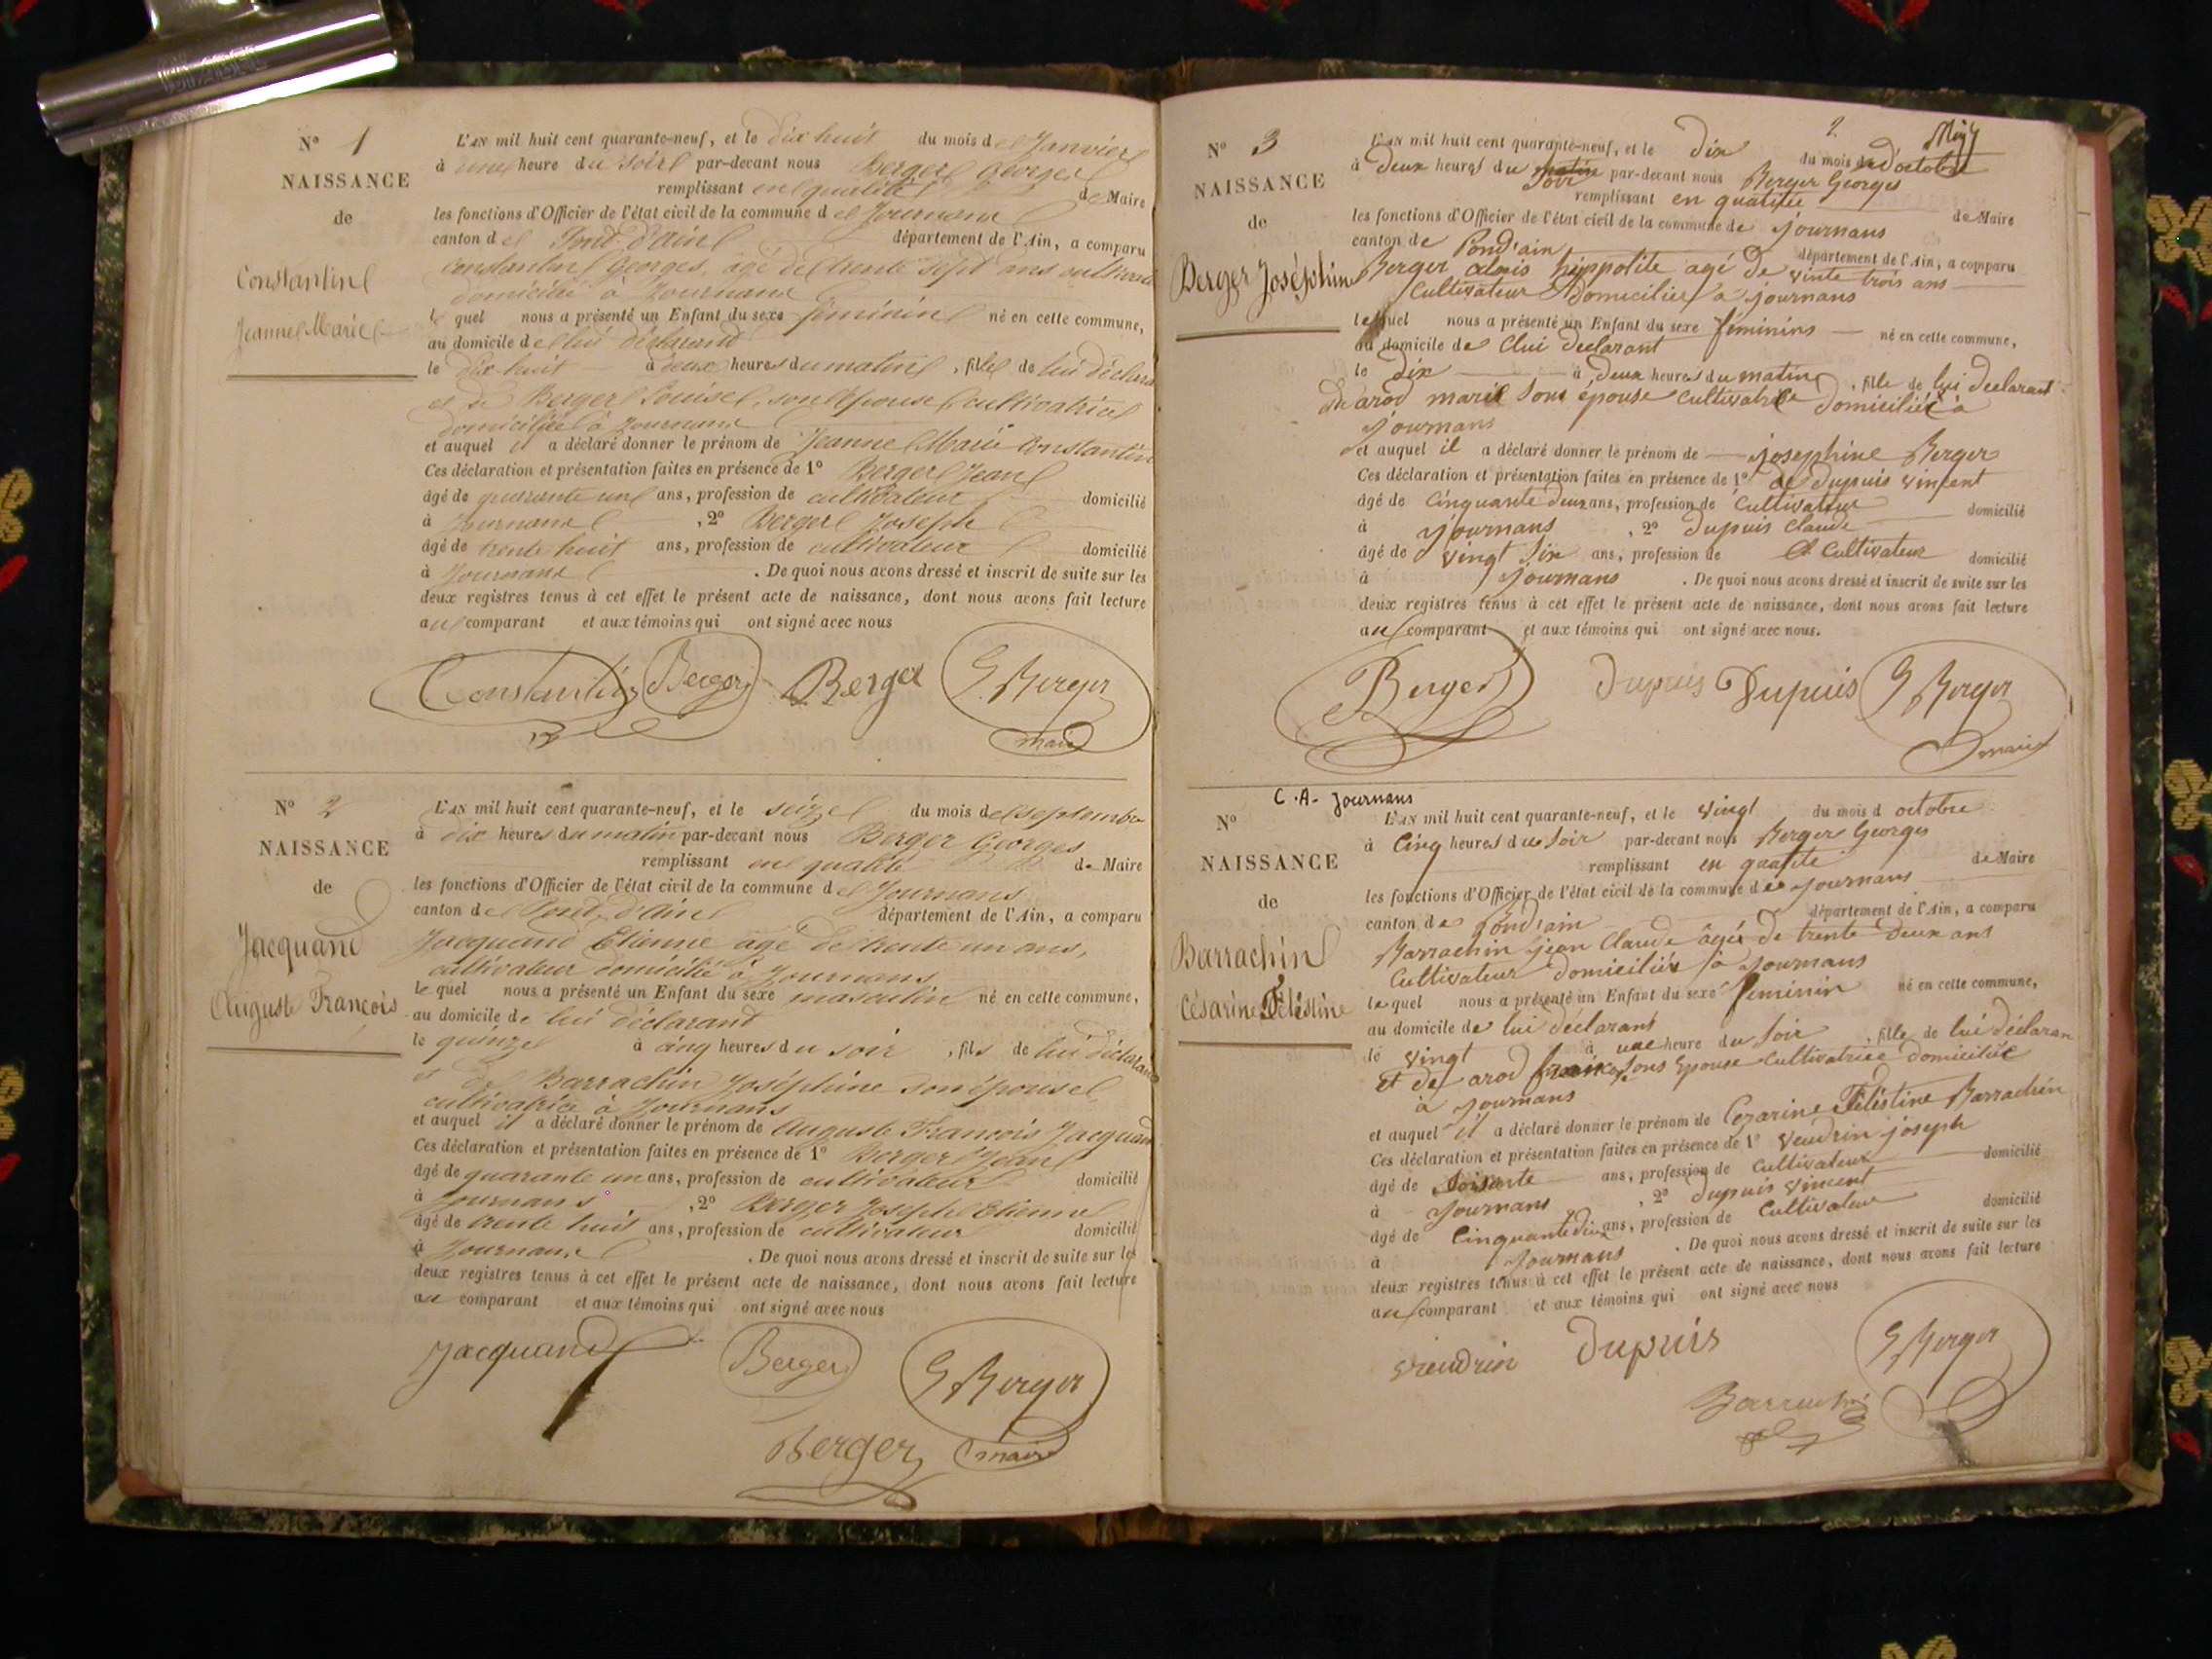 N° 1
NAISSANCE
de
Constantin
Jeanne Marie
L'AN mil huit cent quarante-neuf, et le dix huit du mois de Janvier
à une heure du soir par-devant nous Berger Georges
remplissant en qualité de Maire
les fonctions d'Officier de l'état civil de la commune de Journans
canton de Pont d'ain département de l'Ain, a comparu
Constantin Georges, agé de trente sept ans cultivateur
domicilié à Journans
le quel nous a présenté un Enfant du sexe féminin né en cette commune,
au domicile de lui déclarand
le dix huit à deux heures du matin, fille de lui déclarand
et de Berger Louise, son épouse, cultivatrice
domiciliée à Journans
et auquel il a déclaré donner le prénom de Jeanne Marie Constantin
Ces déclaration et présentation faites en présence de 1° Berger Jean
âgé de quarante un ans, profession de cultivateur domicilié
à Journans, 2° Berger Joseph
âgé de trente huit ans, profession de cultivateur domicilié
à Journans. De quoi nous avons dressé et inscrit de suite sur les
deux registres tenus à cet effet le présent acte de naissance, dont nous avons fait lecture
au comparant et aux témoins qui ont signé avec nous
Constantin Berger Berger G. Berger
maire
N° 2
NAISSANCE
de
Jacquand
Auguste François
L'AN mil huit cent quarante-neuf, et le seize du mois de septembre
à dix heures du matin par-devant nous Berger Georges
remplissant en qualité de Maire
les fonctions d'Officier de l'état civil de la commune de Journans
canton de Pont d'Ain département de l'Ain, a comparu
Jacquand Etienne agé de trente un ans,
cultivateur domicilié à Journans
le quel nous a présenté un Enfant du sexe masculin né en cette commune,
au domicile de lui déclarand
le quinze à cinq heures du soir, fils de lui déclarand
et de Barrachin Joséphine son épouse
cultivatrice à Journans
et auquel il a déclaré donner le prénom de Auguste François Jacquand
Ces déclaration et présentation faites en présence de 1° Berger Jean
âgé de quarante un ans, profession de cultivateur domicilié
à Journans, 2° Berger Joseph Etienne
âgé de trente huit ans, profession de cultivateur domicilié
à Journans. De quoi nous avons dressé et inscrit de suite sur les
deux registres tenus à cet effet le présent acte de naissance, dont nous avons fait lecture
au comparant et aux témoins qui ont signé avec nous
Jacquand Berger G Berger
Berger maire
2
N° 3
NAISSANCE
de
Berger Joséphine
L'AN mil huit cent quarante-neuf, et le dix du mois d'octobre
à deux heures du matin soir par-devant nous Berger Georges
remplissant en qualitée de Maire
les fonctions d'Officier de l'état civil de la commune de journans
canton de Pond'ain département de l'Ain, a comparu
Berger alexis hippolite agé de vinte trois ans
Cultivateur Domicilier a journans
le quel nous a présenté un Enfant du sexe féminins né en cette commune,
au domicile de Clui déclarant
le dix à deux heures du matin, fille de lui déclarant
de arod marie sons épouse cultivatrice domiciliée à
journans
et auquel il a déclaré donner le prénom de josephine Berger
Ces déclaration et présentation faites en présence de 1° de dupuis vincent
âgé de cinquante deux ans, profession de cultivateur domicilié
à journans, 2° dupuis claude
âgé de vingt six ans, profession de Cultivateur domicilié
à journans. De quoi nous avons dressé et inscrit de suite sur les
deux registres tenus à cet effet le présent acte de naissance, dont nous avons fait lecture
au comparant et aux témoins qui ont signé avec nous.
Berger Dupuis Dupuis G Berger
maire
C.A. Journans
N°
NAISSANCE
de
Barrachin
Césarine Félèstine
L'AN mil huit cent quarante-neuf, et le vingt du mois d octobre
à Cinq heures du soir par-devant nous Berger Georges
remplissant en qualité de Maire
les fonctions d'Officier de l'état civil de la commune de journans
canton de pond'ain département de l'Ain, a comparu
Barrachin jean Claude âgée de trente deux ans
Cultivateur domiciliér à journans
le quel nous a présenté un Enfant du sexe féminin né en cette commune,
au domicile de lui déclarant
le vingt à une heure du soir, fille de lui déclaran
et de arod sons épouse cultivatrice domiciliée
à journans
et auquel il a déclaré donner le prénom de Cezarine Félèstine Barrachin
Ces déclaration et présentation faites en présence de 1° veudrin joseph
âgé de soisante ans, profession de cultivateur domicilié
à journans, 2° dupuis vincent
âgé de Cinquante deux ans, profession de Cultivateur domicilié
à journans. De quoi nous avons dressé et inscrit de suite sur les
deux registres tenus à cet effet le présent acte de naissance, dont nous avons fait lecture
au comparant et aux témoins qui ont signé avec nous
Dupuis G Berger